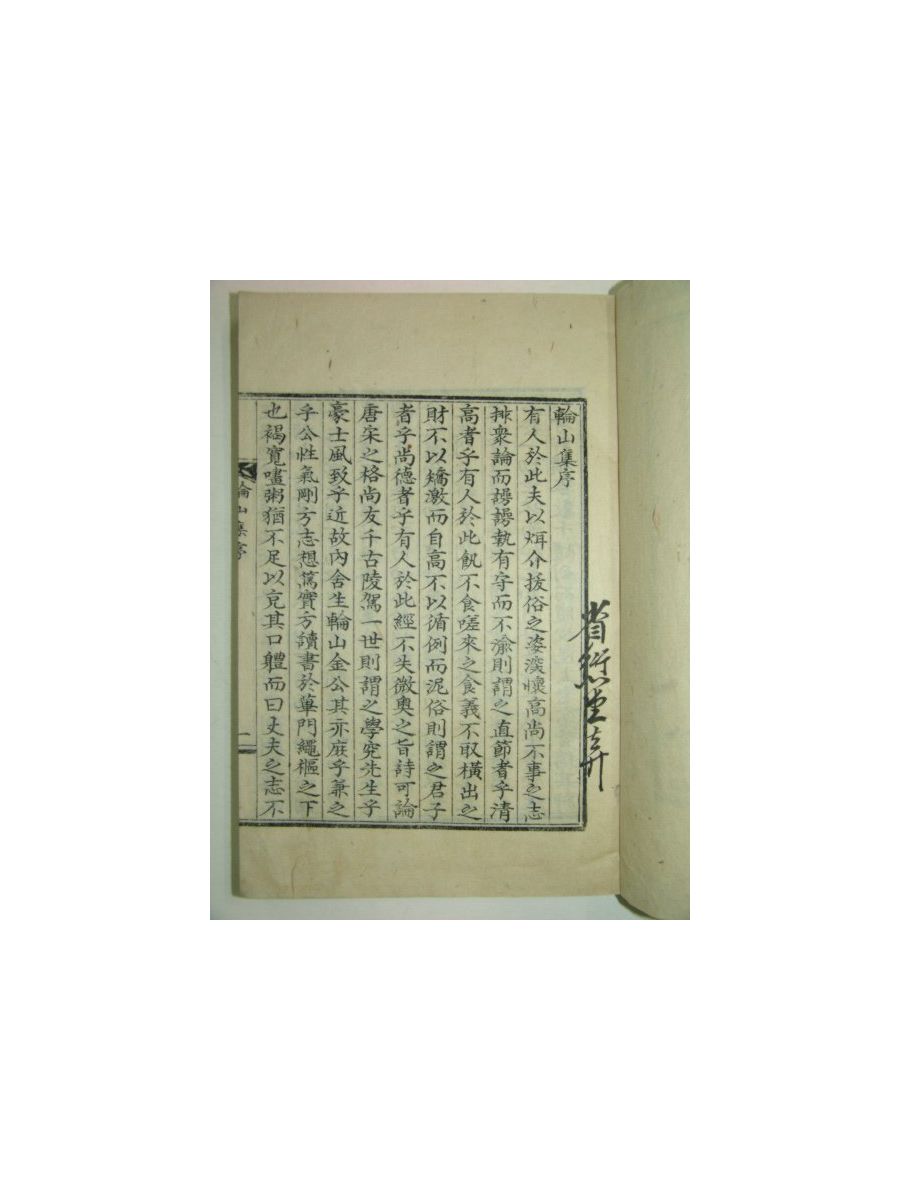 輪山集序
有人於此夫以耿介拔俗之姿漠懷高尚不事之志
排衆論而諤諤執有守而不渝則謂之直節者乎清
高者乎有人於此飢不食嗟來之食義不取橫出之
財不以矯激而自高不以循例而泥俗則謂之君子
者乎尚德者乎有人於此經不失微奧之旨詩可論
唐宋之格尚友千古陵駕一世則謂之學究先生乎
豪士風致乎近故內舍生輪山金公其亦庶乎兼之
乎公性氣剛方志想篤實方讀書於蓽門繩樞之下
也褐寬㗬粥猶不足以充其口軆而曰丈夫之志不
輪山集序